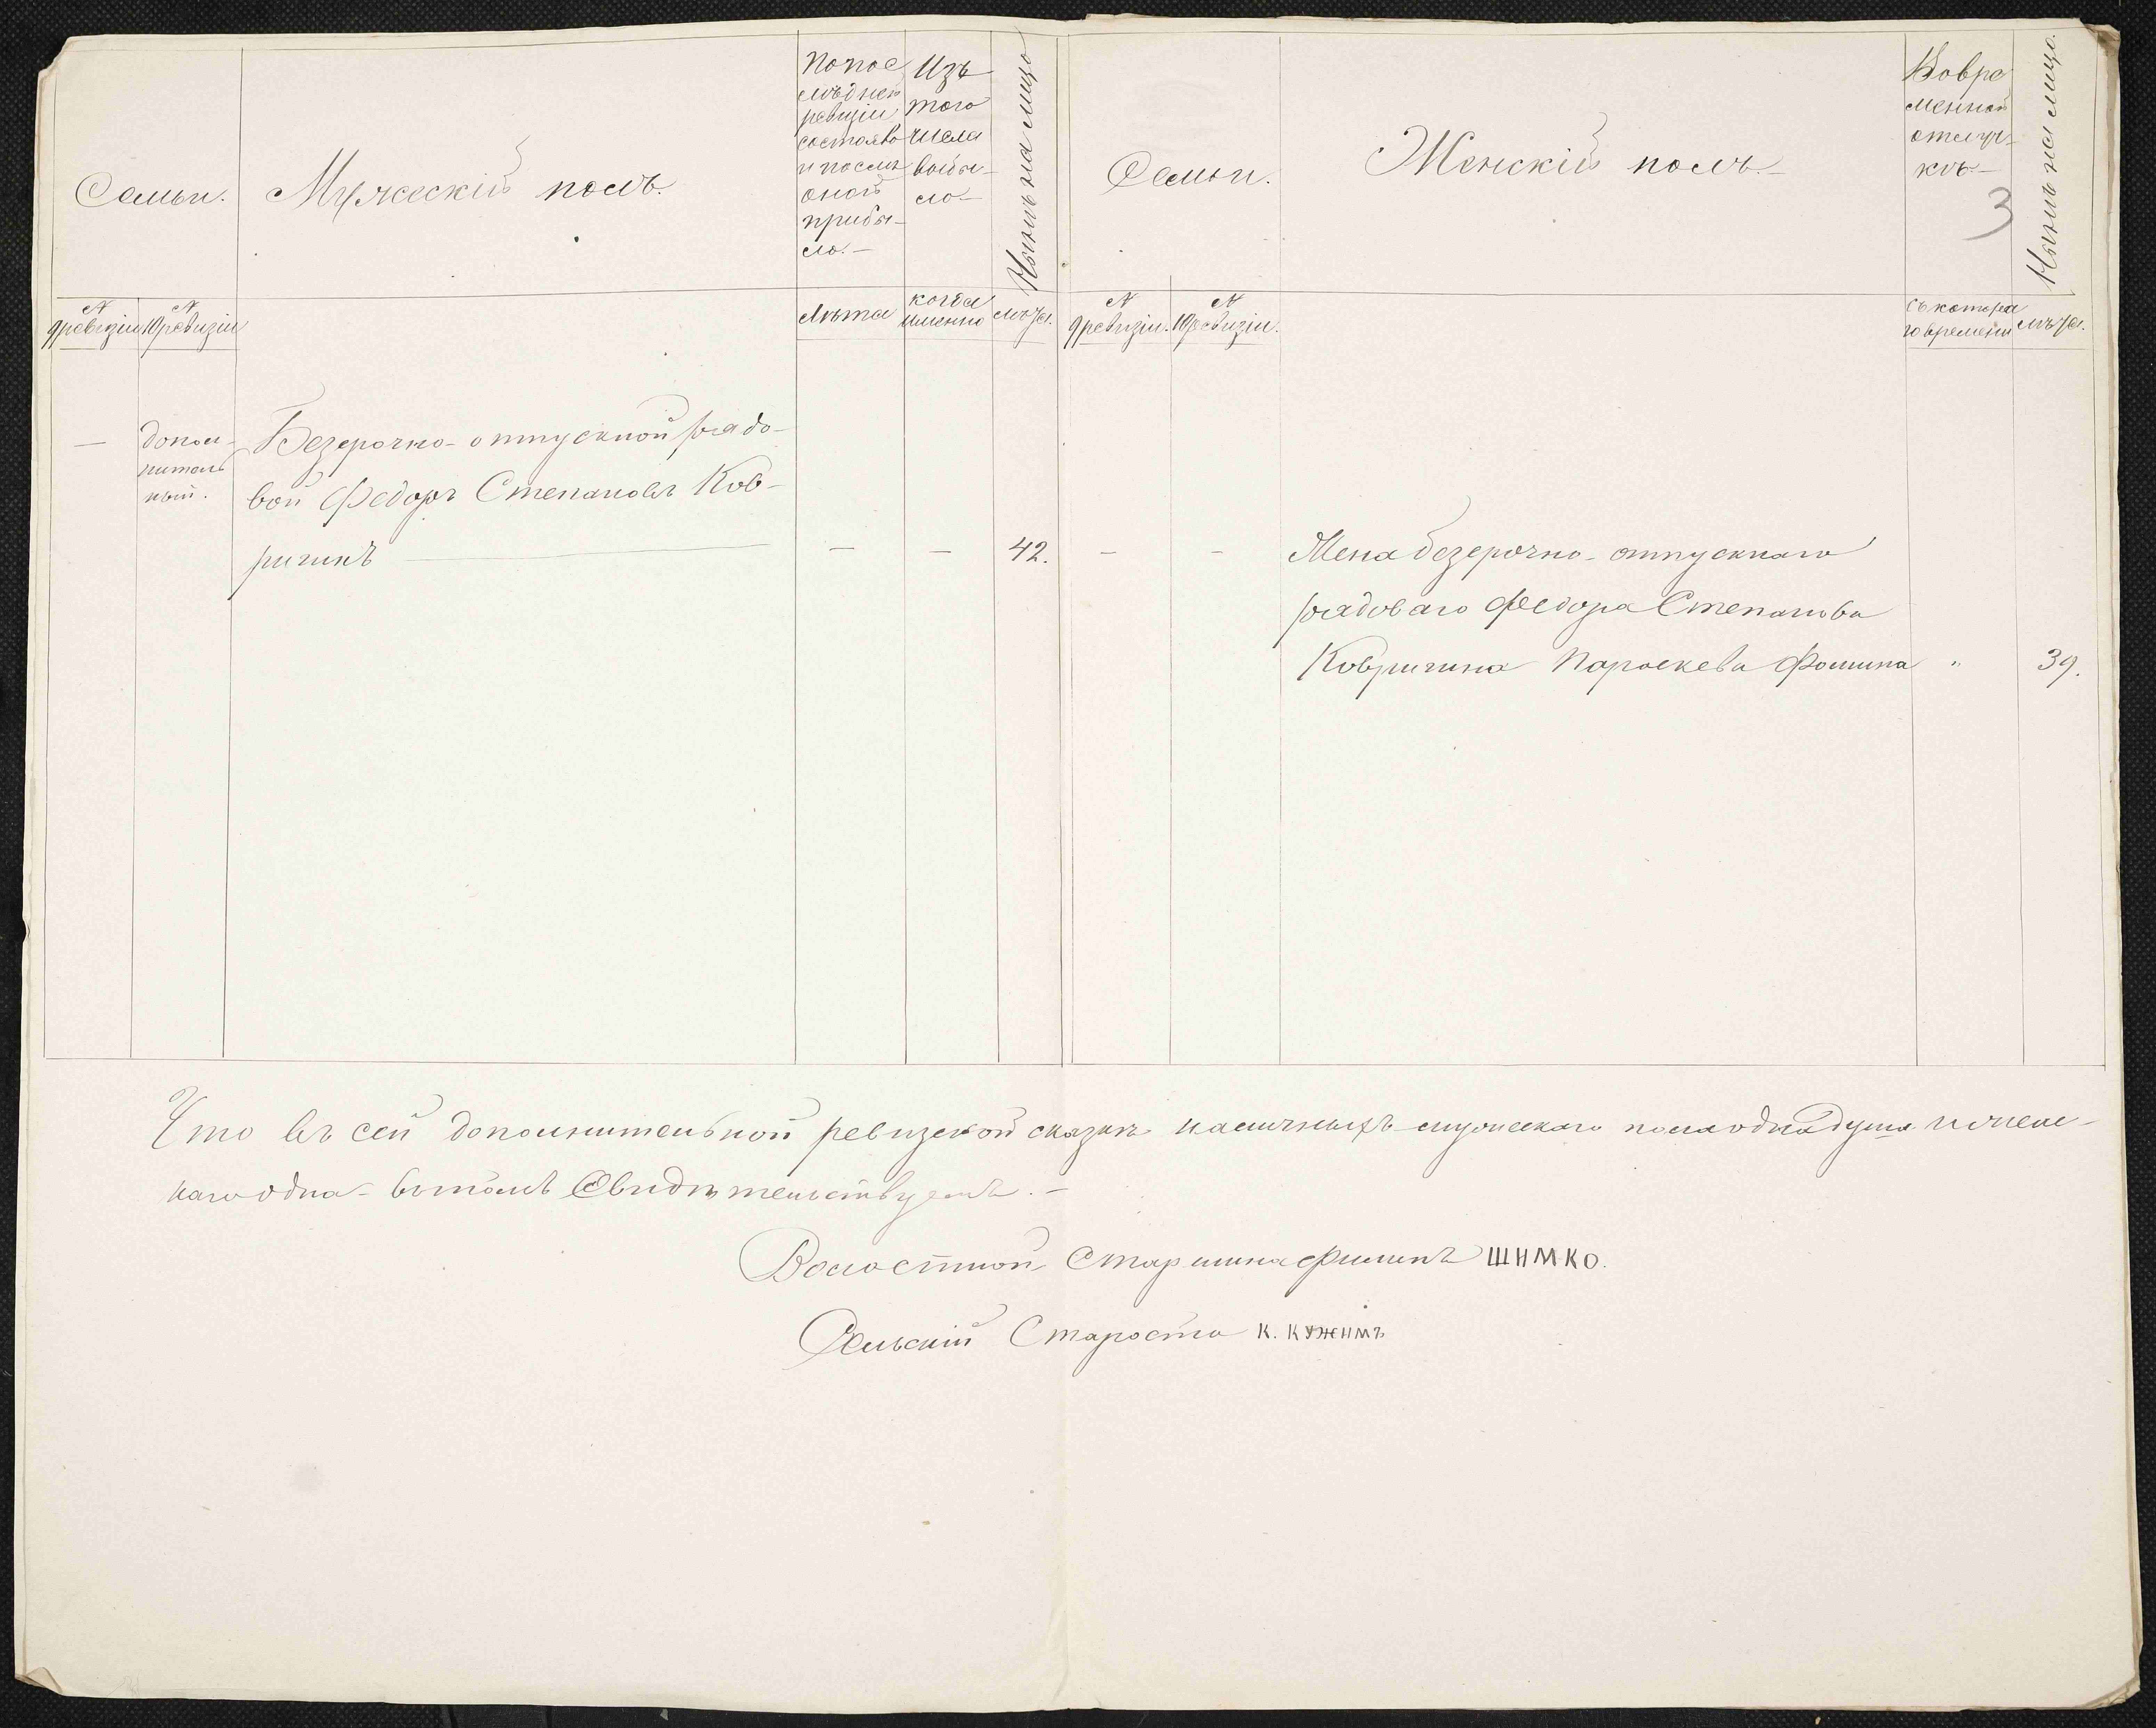 Семьи.
Мужескій полъ.
По пос
лѣдней
ревизіи
состояло
и послѣ
оной
прибы-
ло.-
Изъ
того
числа
выбы-
ло.-
Нынѣ на лицо
Семьи.
Женскій полъ.-
Во вре
менной
отлуч-
кѣ.-
3
Нынѣ на лицо.
№
9 ревизіи
№
10 ревизіи
Лѣта
когда
именно
лѣта.
№
9 ревизіи.
№
10 ревизіи.
съ котора
го времени
лѣта.
—
допол-
нитель
ный.
Безсрочно-отпускной рядо-
вой Федоръ Степановъ Ков-
ригинъ — — — 42.
— — Жена безсрочно-отпускнаго
рядоваго Федора Степанова
Ковригина Параскева Фомина " 39.
Что въ сей дополнительной ревизской сказкѣ наличныхъ мужескаго пола одна душа и женс-
каго одна - въ томъ Свидѣтельствуемъ.-
Волостной Старшина Филипъ ШИМКО.
Сельскій Староста К.